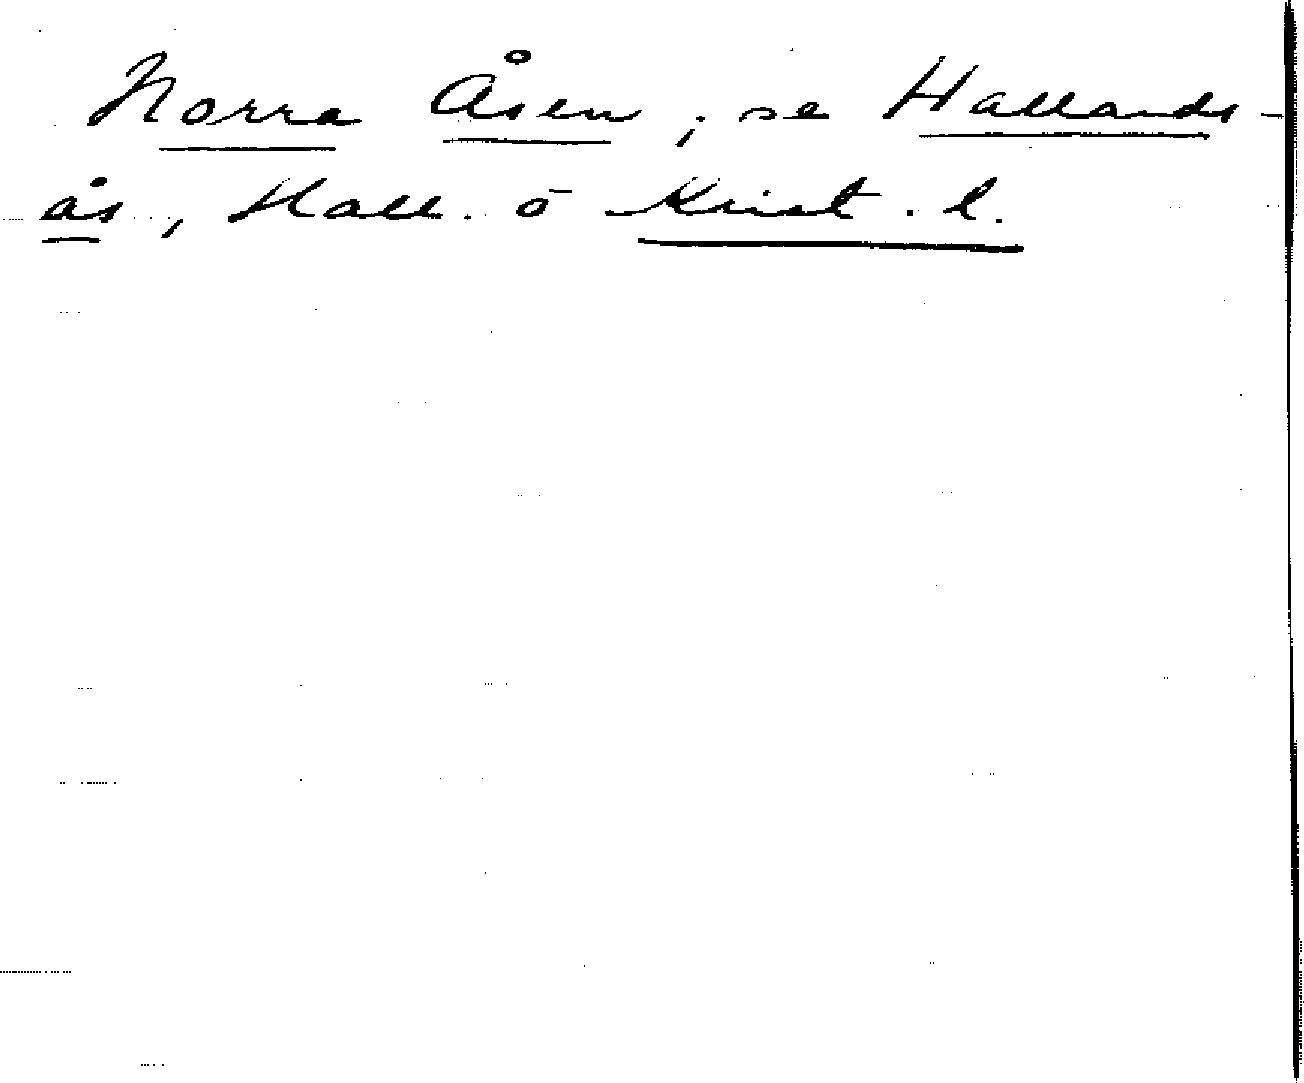 Norra Åsen, se Hallands-
ås, Hall. o Krist. l.